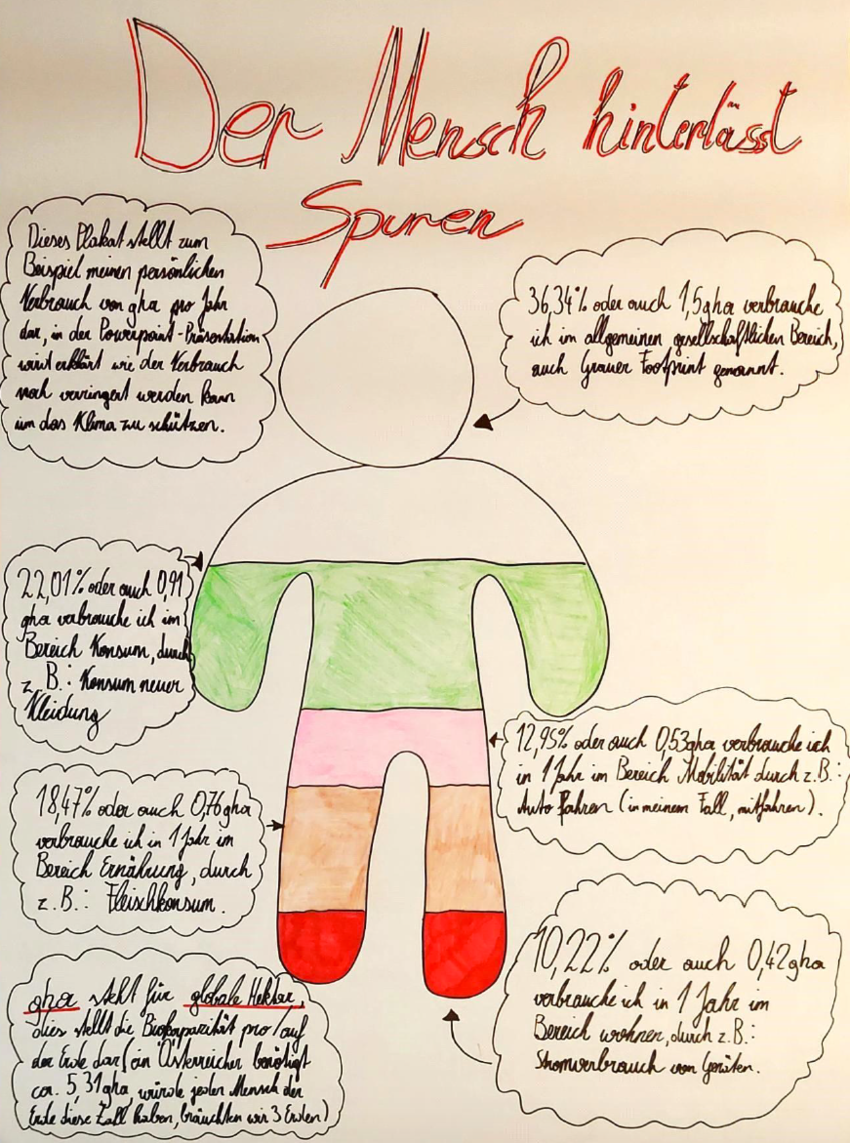 Der Mensch hinterlässt
Spuren
Dieses Plakat stellt zum
Beispiel meinen persönlichen
Verbrauch von gha pro Jahr
dar, in der Powerpoint-Präsentation
wird erklärt wie der Verbrauch
noch verringert werden kann
um das Klima zu schützen.
36,34% oder auch 1,5gha verbrauche
ich im allgemeinen gesellschaftlichen Bereich,
auch Grauer Footprint genannt.
22,01% oder auch 0,91
gha verbrauche ich im
Bereich Konsum, durch
z. B.: Konsum neuer
Kleidung
12,95% oder auch 0,53gha verbrauche ich
in 1 Jahr im Bereich Mobilität durch z.B.:
Auto Fahren (in meinem Fall, mitfahren).
18,47% oder auch 0,76gha
verbrauche ich in 1 Jahr im
Bereich Ernährung, durch
z. B.: Fleischkonsum.
10,22% oder auch 0,42gha
verbrauche ich in 1 Jahr im
Bereich wohnen, durch z.B.:
Stromverbrauch von Geräten.
gha steht für globale Hektar,
dies stellt die Biokapazität pro/auf
der Erde dar (ein Österreicher benötigt
ca. 5,31gha, würde jeder Mensch der
Erde diese Zahl haben, bräuchten wir 3 Erden)